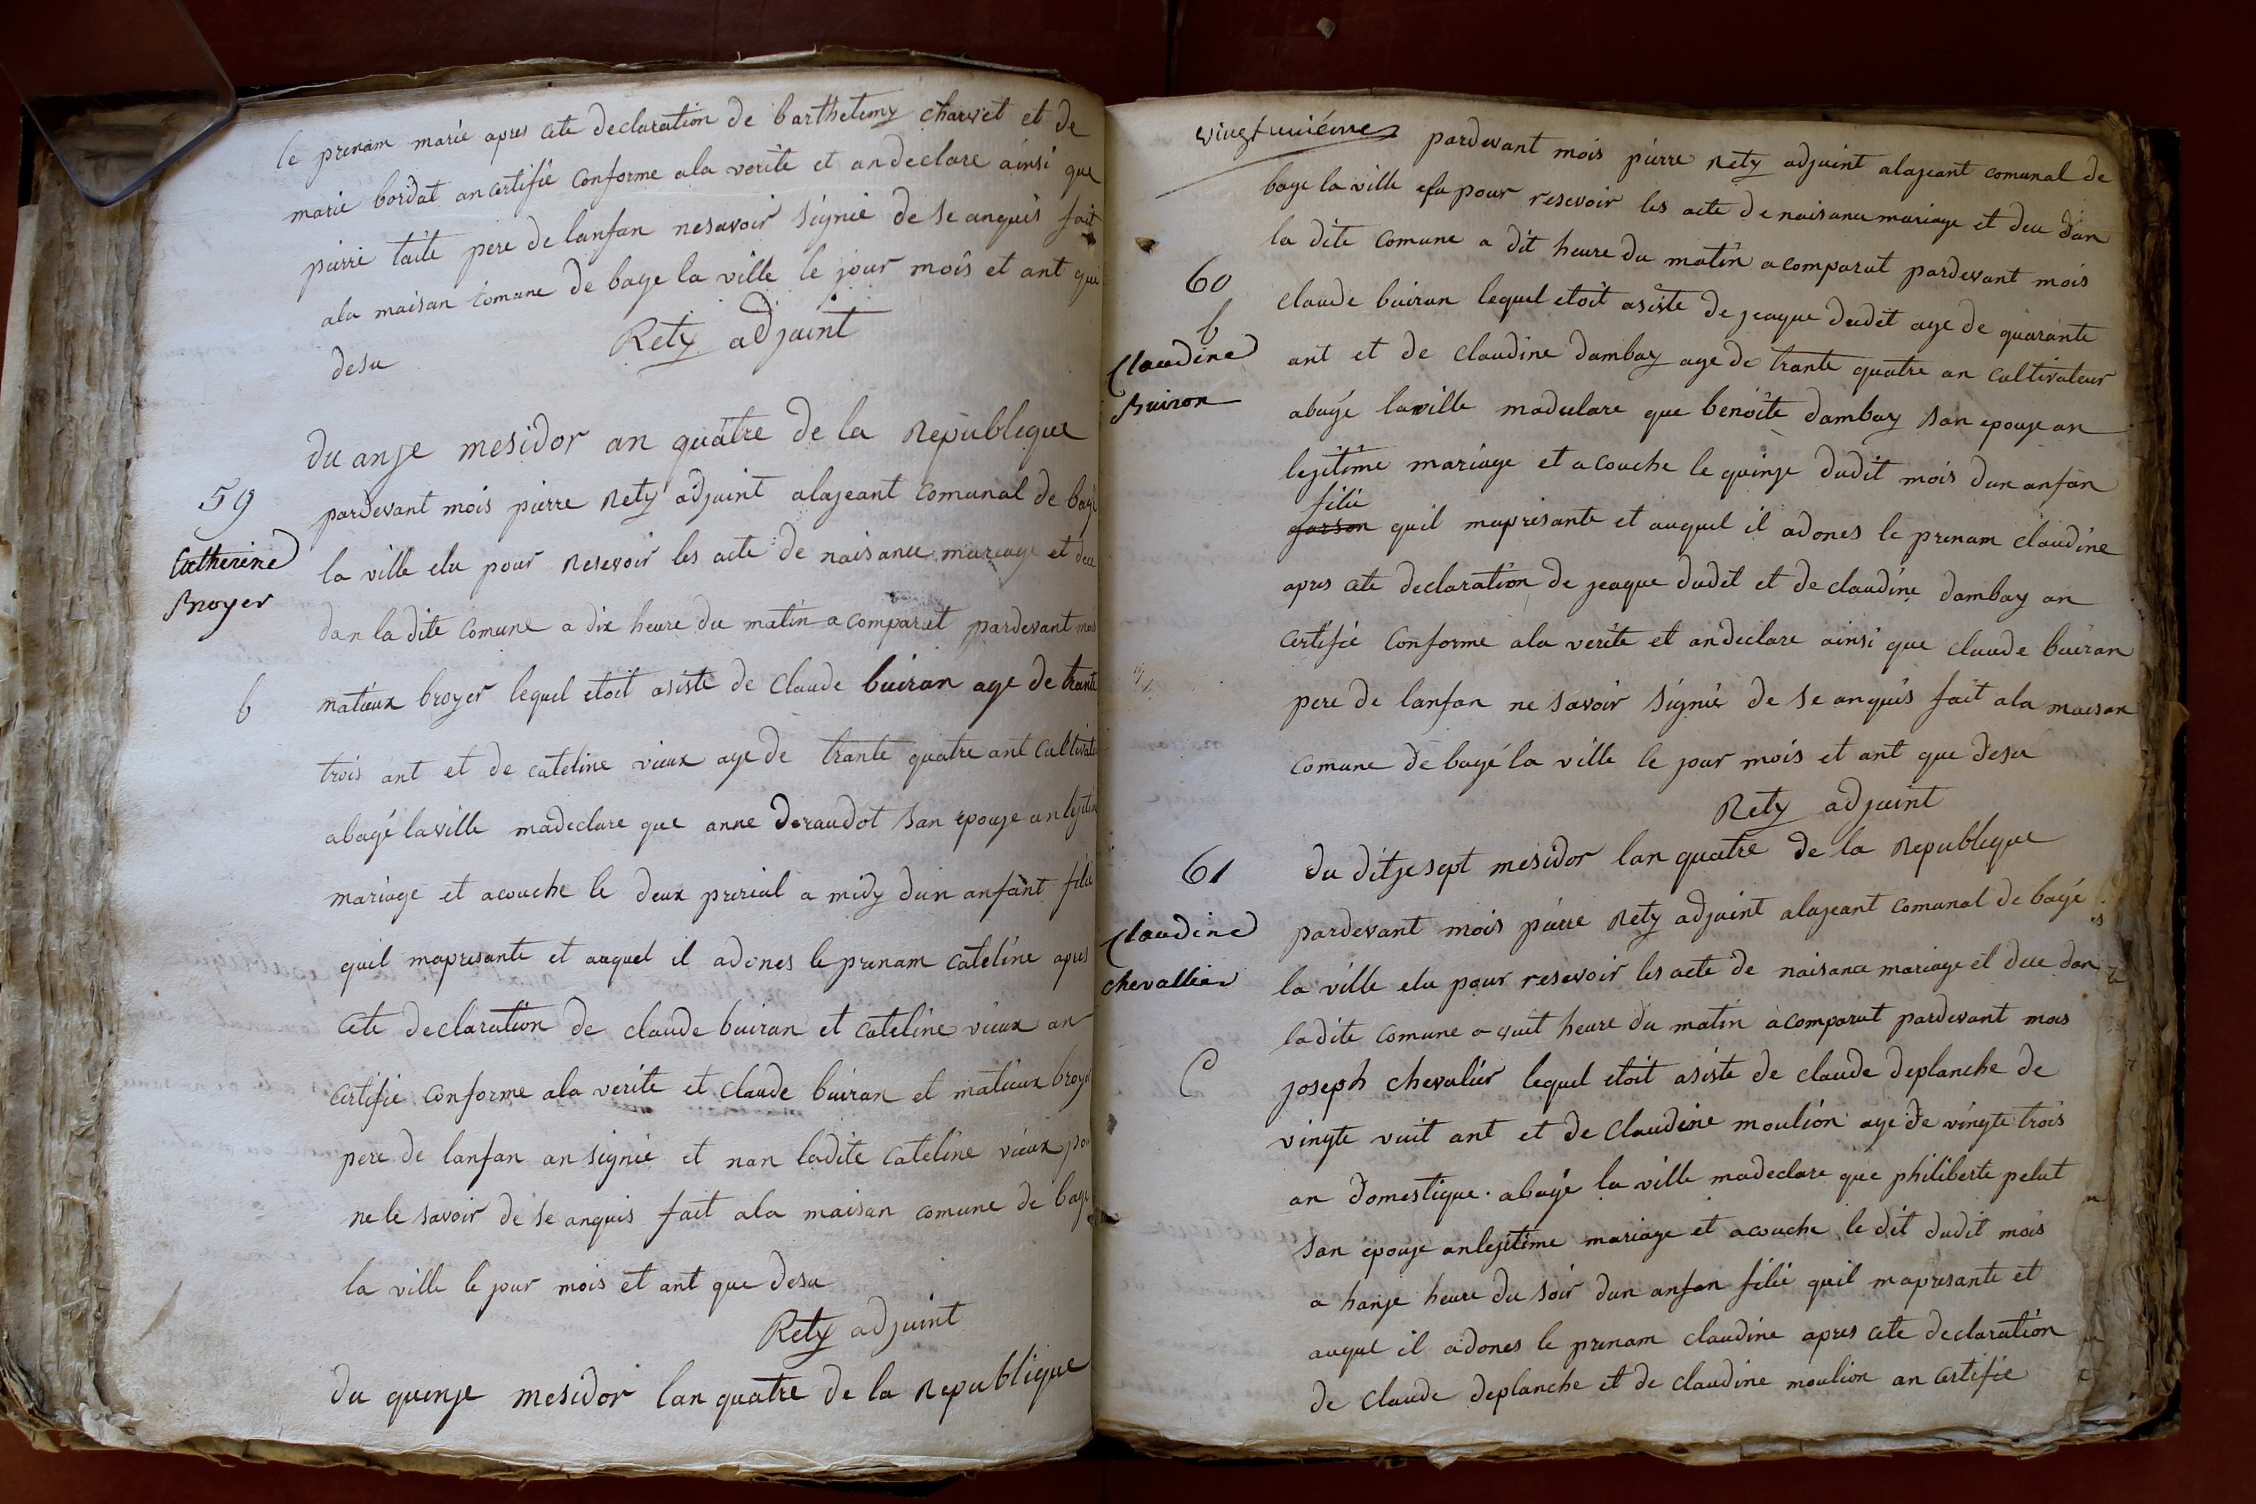 le prenam marie apres cete declaration de barthelemy charvet et de
marie bordat an certifié conforme ala verite et andeclare ainsi que
pierre taite pere de lanfan nesavoir signié de se anquis fait
ala maisan comune de bage la ville le jour mois et ant que
desu
Rety adjoint
du anze mesidor an quatre de la Republeque
59
pardevant mois pierre Rety adjoint alajeant comunal de bagé
la ville elu pour Resevoir les acte de naisance mariage et dece
Catherine
Broyer
dan la dite comune a dix heure du matin a comparut pardevant mois
b
matieux broyer lequel etoit asisté de claude buiran age de trante
trois ant et de cateline vieux age de trante quatre ant cultivateur
abagé laville madeclare que anne deraudot san epouze an lejitime
mariage et acouche le deux prerial a midy dun anfant filie
quil mapresante et auquel il adones le prenam cateline apres
cete declaration de claude buiran et cateline vieux an
certifié conforme ala verite et claude buiran et matieux broyer
pere de lanfan an signié et nan ladite cateline vieux pour
ne le savoir de se anquis fait ala maisan comune de bage
la ville le jour mois et ant que desu
Rety adjoint
du quinze mesidor lan quatre de la Republique
vingt unième
pardevant mois pierre Rety adjoint alajeant comunal de
bage la ville elu pour resevoir les acte de naisance mariage et dece dan
la dite comune a dit heure du matin a comparut pardevant mois
60
b
Claudine
Buiron
claude buiran lequel etoit asiste de jeaque dudet age de quarante
ant et de claudine dambay age de trante quatre an cultivateur
abagé laville madeclare que benoite dambay san epouze an
lejitime mariage et acouche le quinze dudit mois dun anfan
filie
garson quil mapresante et auquel il adones le prenam claudine
apres cete declaration de jeaque dudet et de claudine dambay an
certifié conforme ala verite et andeclare ainsi que claude buiran
pere de lanfan ne savoir signié de se anquis fait ala maisan
comune de bagé la ville le jour mois et ant que desu
Rety adjoint
61
du ditzesept mesidor lan quatre de la Republeque
Claudine
chevallier
pardevant mois pierre Rety adjoint alajeant comunal de bagé
la ville elu pour resevoir les acte de naisance mariage et dece dan
ladite comune a vuit heure du matin acomparut pardevant mois
C
joseph chevalier lequel etoit asiste de claude deplanche de
vingte vuit ant et de claudine moulion age de vingte trois
an domestique abagé la ville madeclare que philiberte pelut
san epouze anlejitime mariage et acouche le dit dudit mois
a hanze heure du soir dun anfan filié quil mapresante et
auquel il adones le prenam claudine apres cete declaration
de claude deplanche et de claudine moulion an certifié